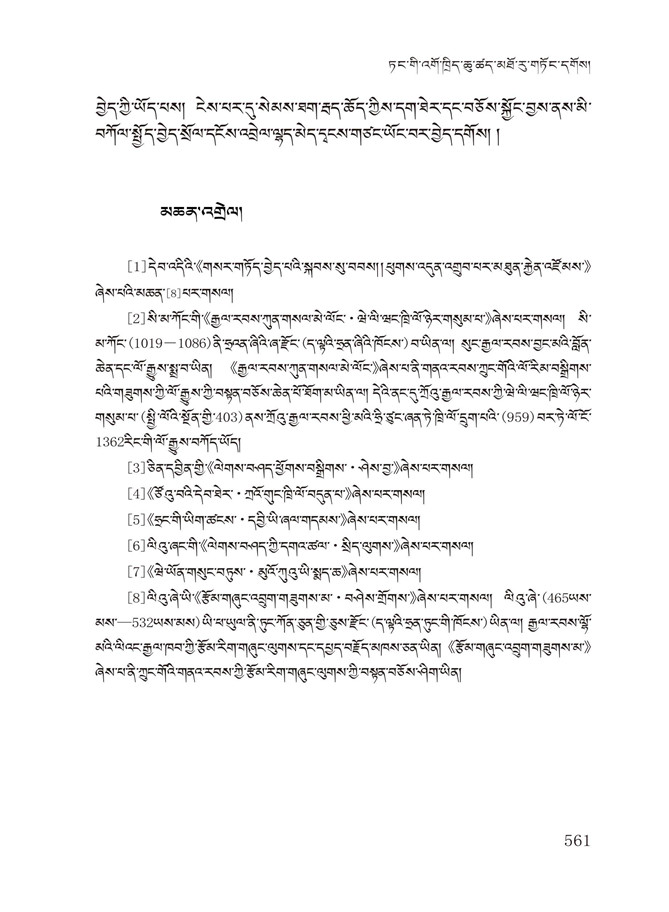 ཏང་གི་འགོ་ཁྲིད་ཆུ་ཚད་མཐོ་རུ་གཏོང་དགོས།
བྱེད་ཀྱི་ཡོད་པས། ངེས་པར་དུ་སེམས་ཐག་རྦད་ཆོད་ཀྱིས་དག་ཐེར་དང་བཅོས་སྐྱོང་བྱས་ནས་མི་
བཀོལ་སྤྱོད་བྱེད་སྲོལ་དངོས་འབྲེལ་ལྷད་མེད་དྭངས་གཙང་ཡོང་བར་བྱེད་དགོས། །
མཆན་འགྲེལ།
[1]དེབ་འདིའི་《གསར་གཏོད་བྱེད་པའི་སྐབས་སུ་བབས།།ཕུགས་འདུན་འགྲུབ་པར་མཐུན་རྐྱེན་འཛོམས་》
ཞེས་པའི་མཆན་[8]པར་གསལ།
[2]སི་མ་ཀོང་གི་《རྒྱལ་རབས་ཀུན་གསལ་མེ་ལོང་・ཝེ་ལེ་ཝང་ཁྲི་ལོ་ཉེར་གསུམ་པ་》ཞེས་པར་གསལ། སི་
མ་ཀོང་(1019—1086)ནི་ཧྲན་ཞིའི་ཞ་རྫོང་(ད་ལྟའི་ཧྲན་ཞིའི་ཁོངས་)པ་ཡིན་ལ། སུང་རྒྱལ་རབས་བྱང་མའི་བློན་
ཆེན་དང་ལོ་རྒྱུས་སྨྲ་བ་ཡིན། 《རྒྱལ་རབས་ཀུན་གསལ་མེ་ལོང་》ཞེས་པ་ནི་གནའ་རབས་ཀྲུང་གོའི་ལོ་རིམ་བསྒྲིགས་
པའི་གཟུགས་ཀྱི་ལོ་རྒྱུས་ཀྱི་བསྟན་བཅོས་ཆེན་པོ་ཐོག་མ་ཡིན་ལ། དེའི་ནང་དུ་ཀྲོའུ་རྒྱལ་རབས་ཀྱི་ཝེ་ལེ་ཝང་ཁྲི་ལོ་ཉེར་
གསུམ་པ་(སྤྱི་ལོའི་སྔོན་གྱི་403)ནས་ཀྲོའུ་རྒྱལ་རབས་ཕྱི་མའི་ཧྲི་ཙུང་ཞན་ཏེ་ཁྲི་ལོ་དྲུག་པའི་(959)བར་ཏེ་ལོ་ངོ་
1362རིང་གི་ལོ་རྒྱུས་བཀོད་ཡོད།
[3]ཅིན་དབྱིན་གྱི་《ལེགས་བཤད་ཕྱོགས་བསྒྲིགས་・ཤེས་བྱ་》ཞེས་པར་གསལ།
[4]《ཙོ་འུ་བའི་དེབ་ཐེར་・ཀྲའོ་གུང་ཁྲི་ལོ་བདུན་པ་》ཞེས་པར་གསལ།
[5]《ཧྲང་གི་ཡིག་ཚངས་・དབྱི་ཡི་ཞལ་གདམས་》ཞེས་པར་གསལ།
[6]ལིའུ་ཞང་གི་《ལེགས་བཤད་ཀྱི་དགའ་ཚལ་・སྲིད་ལུགས་》ཞེས་པར་གསལ།
[7]《ཝེ་ཡོན་གསུང་བཏུས་・མུའོ་ཀུའུ་ཡི་སྨད་ཆ》ཞེས་པར་གསལ།
[8]ལིའུ་ཞེ་ཡི་《རྩོམ་གཞུང་འབྲུག་གཟུགས་མ་・བཤེས་གྲོགས་》ཞེས་པར་གསལ། ལིའུ་ཞེ་(465ཡས་
མས་—532ཡས་མས)ཡི་ཕ་ཡུལ་ནི་ཏུང་ཀོན་ཅུན་གྱི་ཅུས་རྫོང་(ད་ལྟའི་ཧྲན་ཏུང་གི་ཁོངས་)ཡིན་ལ། རྒྱལ་རབས་ལྷོ་
མའི་ལིའང་རྒྱལ་ཁབ་ཀྱི་རྩོམ་རིག་གཞུང་ལུགས་དང་དཔྱད་བརྗོད་མཁས་ཅན་ཡིན། 《རྩོམ་གཞུང་འབྲུག་གཟུགས་མ་》
ཞེས་པ་ནི་ཀྲུང་གོའི་གནའ་རབས་ཀྱི་རྩོམ་རིག་གཞུང་ལུགས་ཀྱི་བསྟན་བཅོས་ཤིག་ཡིན།
561